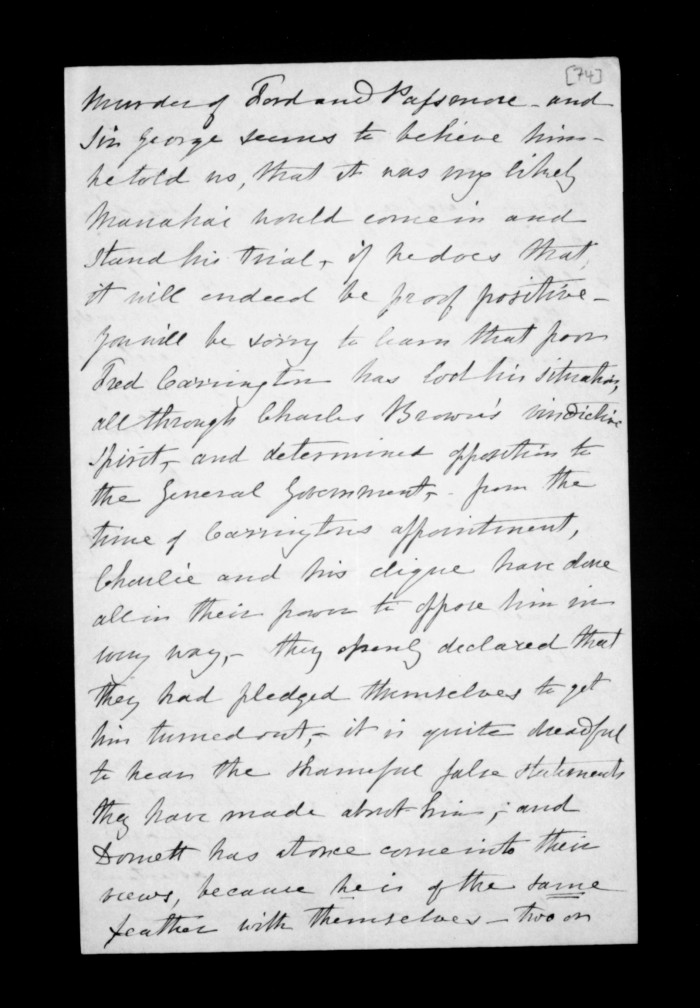 [74]
Murder of Ford and Passmore - and
Sir George seems to believe him -
he told us, that it was very likely
Manahai would come in and
stand his trial, - if he does that,
it will indeed be proof positive -
You will be sorry to learn that poor
Fred Carrington has lost his situation,
all through Charles Brown's vindictive
spirit, - and determined opposition to
the General Government, - from the
time of Carringtons appointment,
Charlie and his clique have done
all in their power to oppose him in
every way, - they openly declared that
they had pledged themselves to get
him turned out, - it is quite dreadful
to hear the shameful false statements
they have made about him; and
Domett has at once come into their
views, because he is of the same
feather with themselves - two or